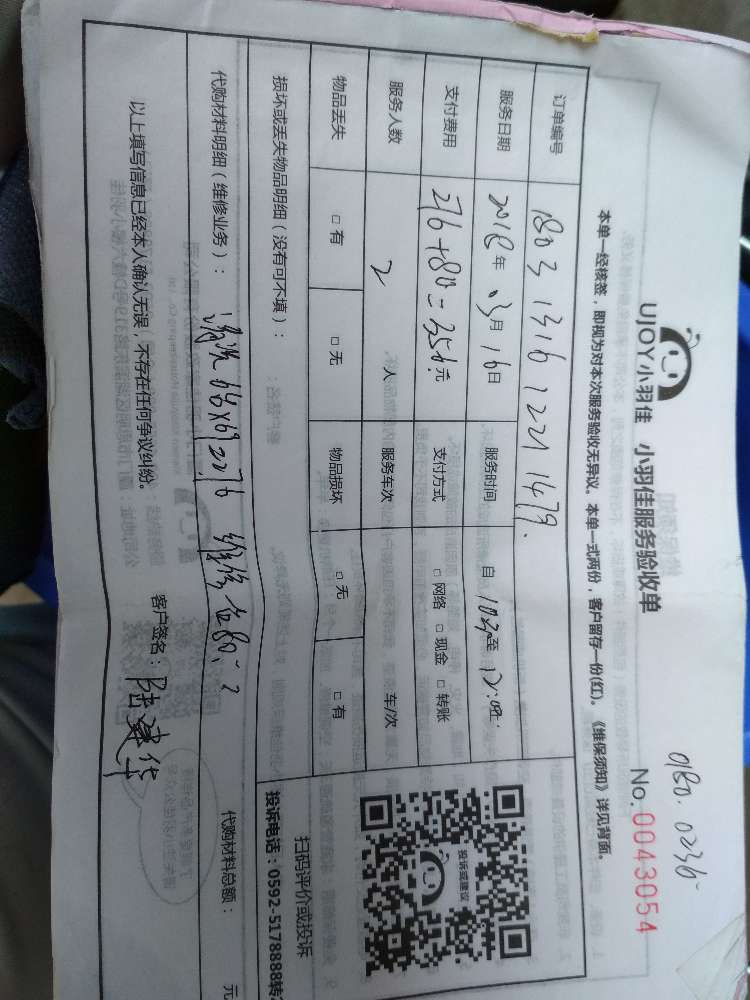 0180.0236
UJOY小羽佳 小羽佳服务验收单
No. 0043054
本单一经核签，即视为对本次服务验收无异议。本单一式两份，客户留存一份(红)。《维保须知》详见背面。
订单编号 1803131612211479.
服务日期 2018年 03月 16日 服务时间 自 至
支付费用 276+80=356元 支付方式 □网络 □现金 □转账
服务人数 2 人 服务车次 车/次
物品丢失 □有 □无 物品损坏 □无 □有
投诉或建议
扫码评价或投诉
投诉电话：0592-5178888转2
损坏或丢失物品明细（没有可不填）：
代购材料明细（维修业务）： 清洗 维修 代购材料总额： 元
以上填写信息已经本人确认无误，不存在任何争议纠纷。 客户签名：陆建华